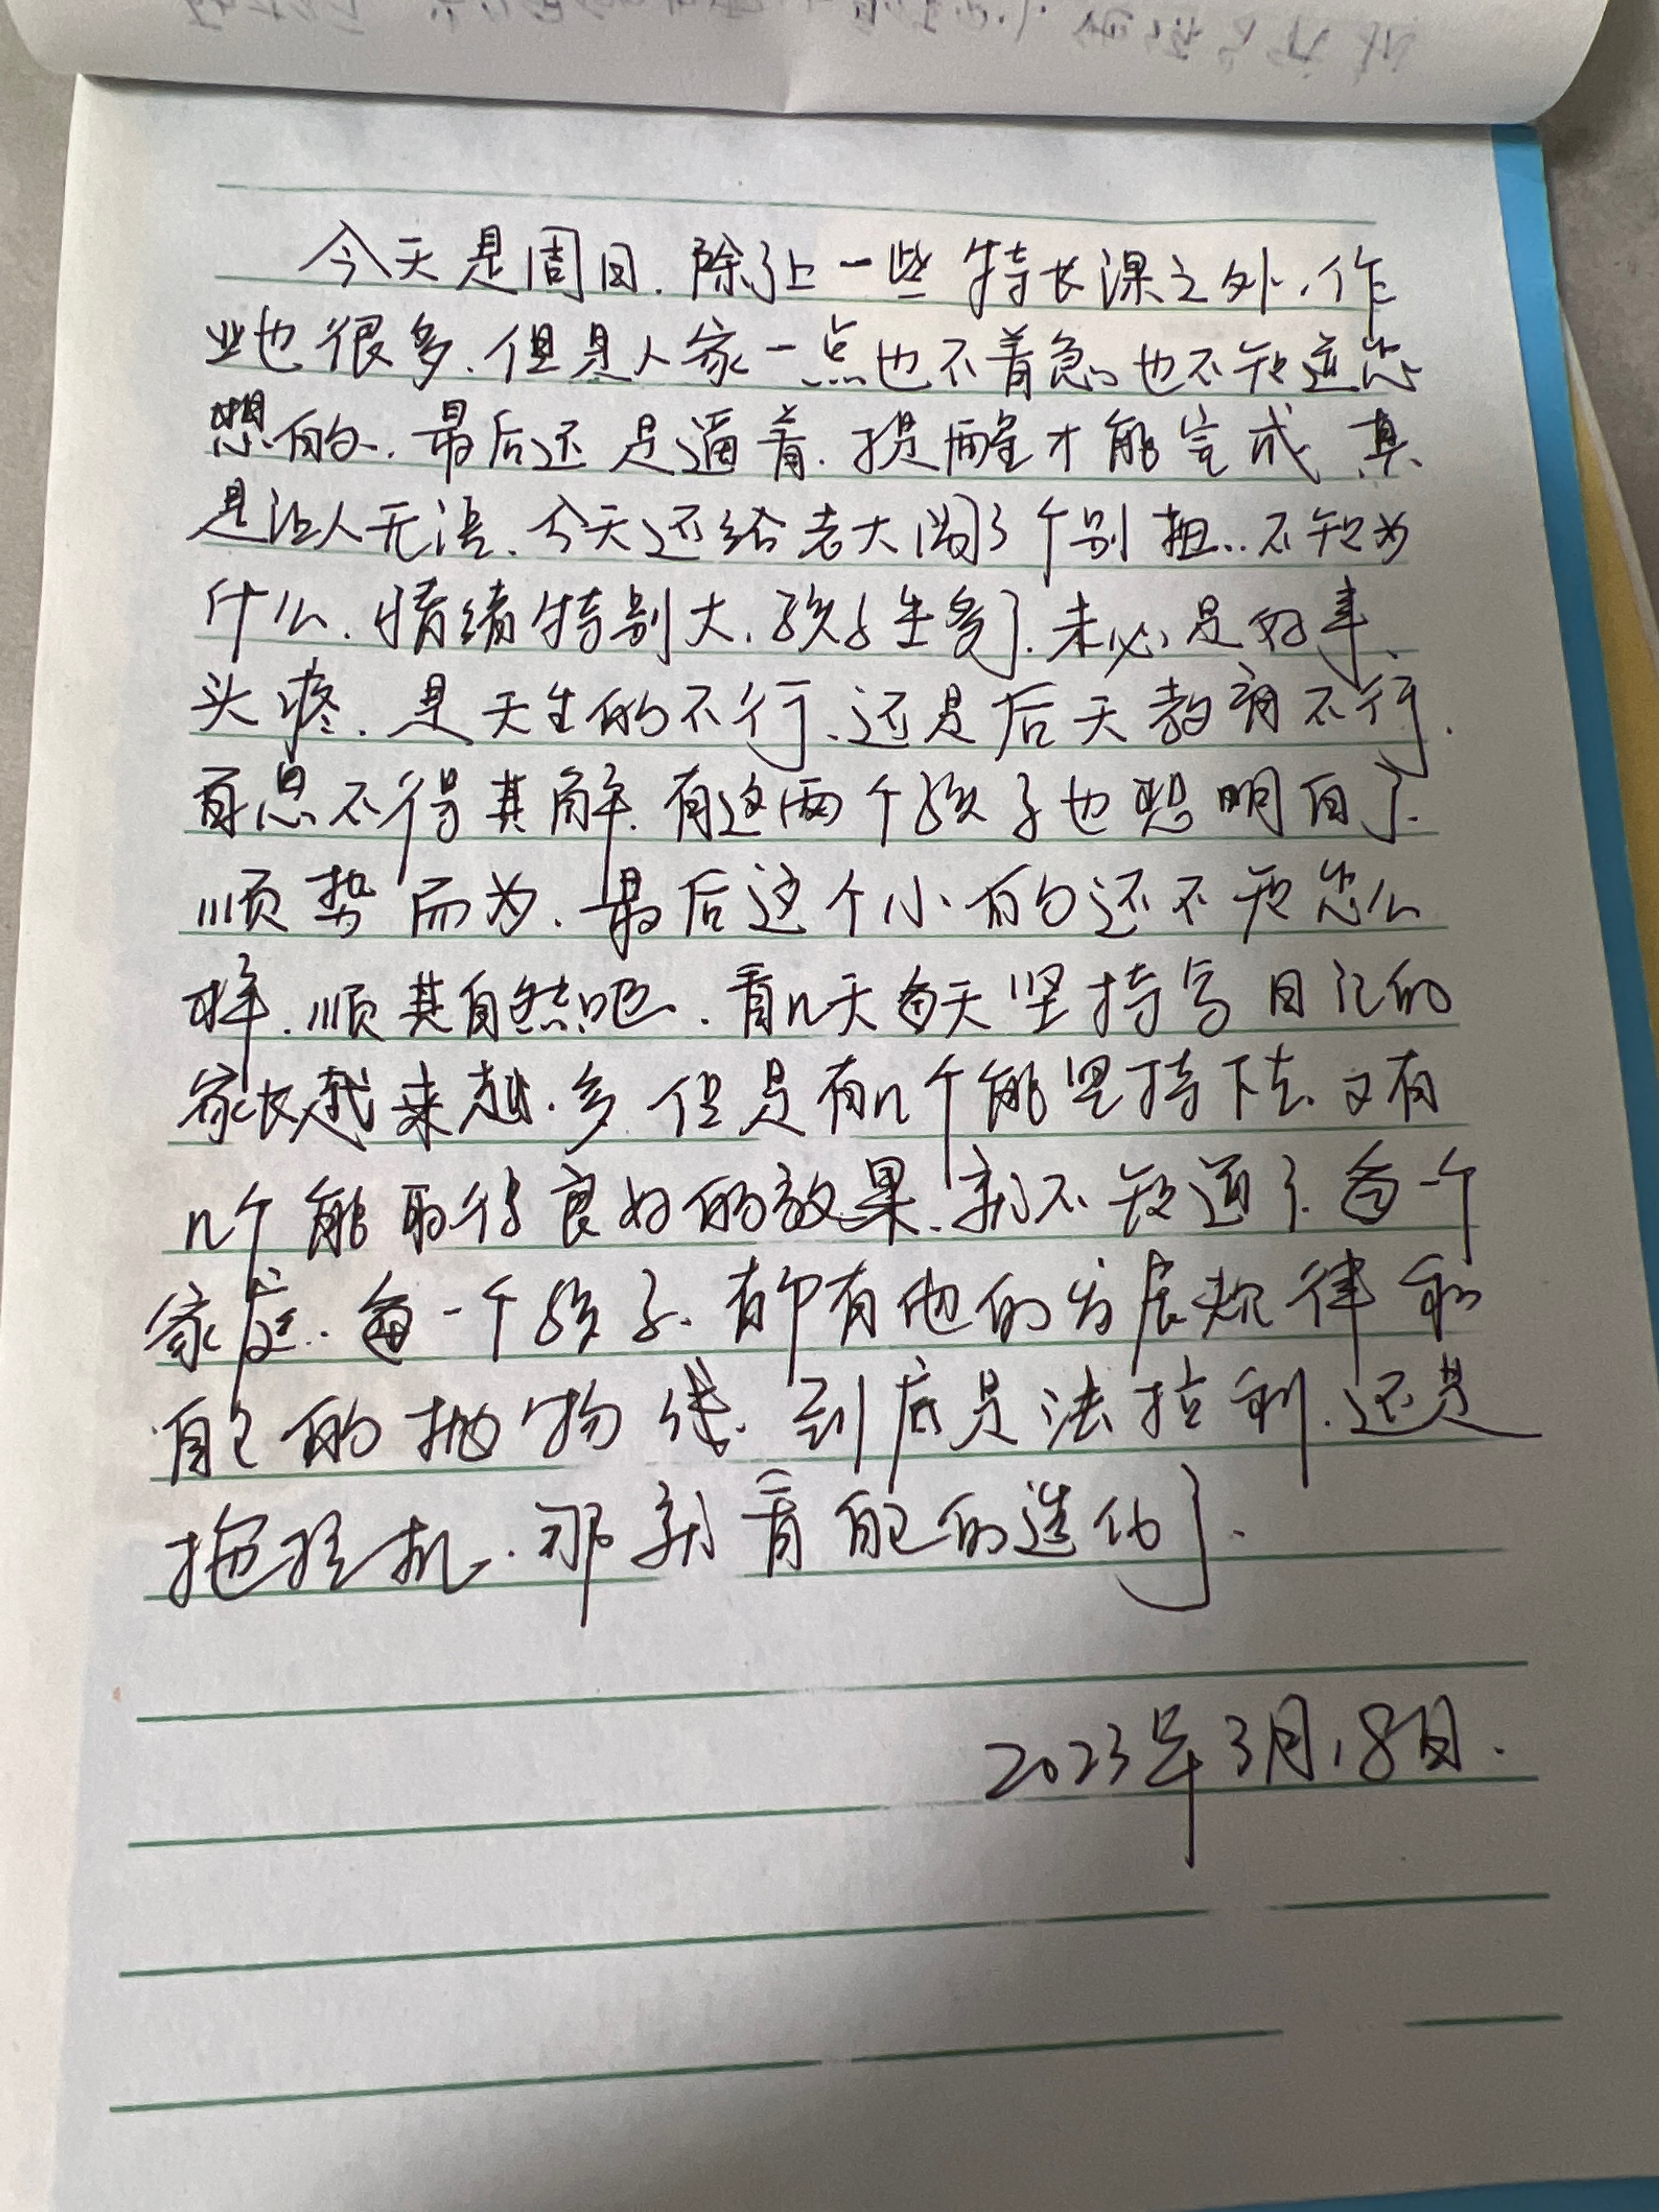 今天是周日.除了上一些特长课之外.作
业也很多.但是人家一点也不着急,也不知道怎
想的.最后还是逼着.提醒才能完成 真
是让人无语.今天还给老大闹了个别扭..不知为
什么.情绪特别大.孩子生多了.未必是好事.
头疼.是天生的不行.还是后天教育不行.
百思不得其解.有这两个孩子也想明白了.
顺势而为.最后这个小的还不知怎么
样.顺其自然吧.看几天每天坚持写日记的
家长越来越.多 但是有几个能坚持下去.又有
几个能取得良好的效果.就不知道了.每一个
家庭..每一个孩子.都有他的发展规律和
自己的抛物线.到底是法拉利.还是
拖拉机.那就看自己的造化了.
2023年3月18日.